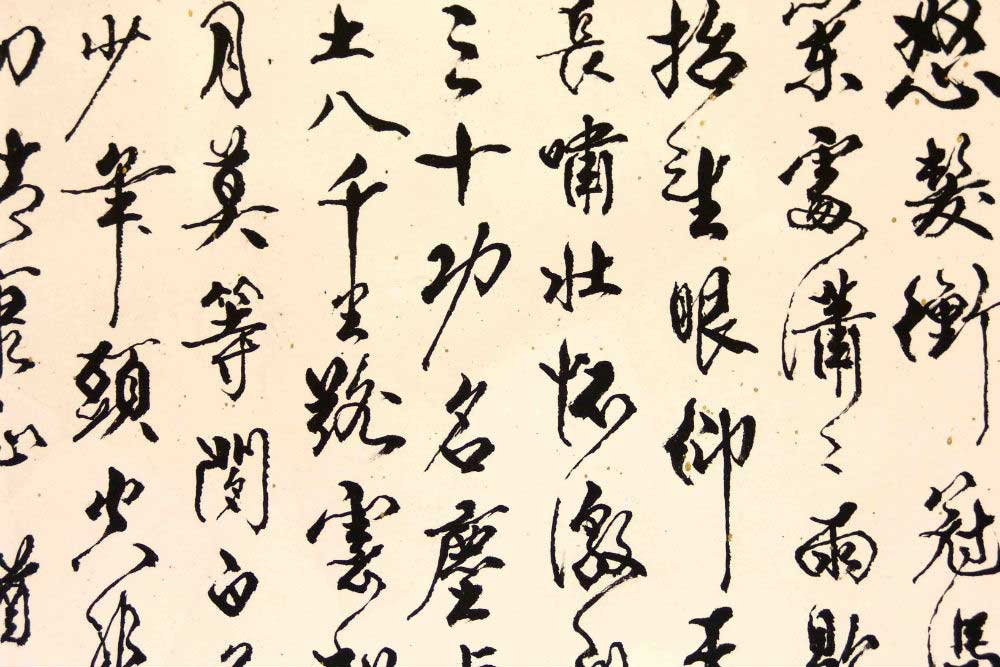 怒髮衝冠馮
闌處瀟〻雨歇
抬望眼仰天
長嘯壯懷激烈
三十功名塵與
土八千里路雲和
月莫等閒白了
少年頭空悲
切靖康恥猶